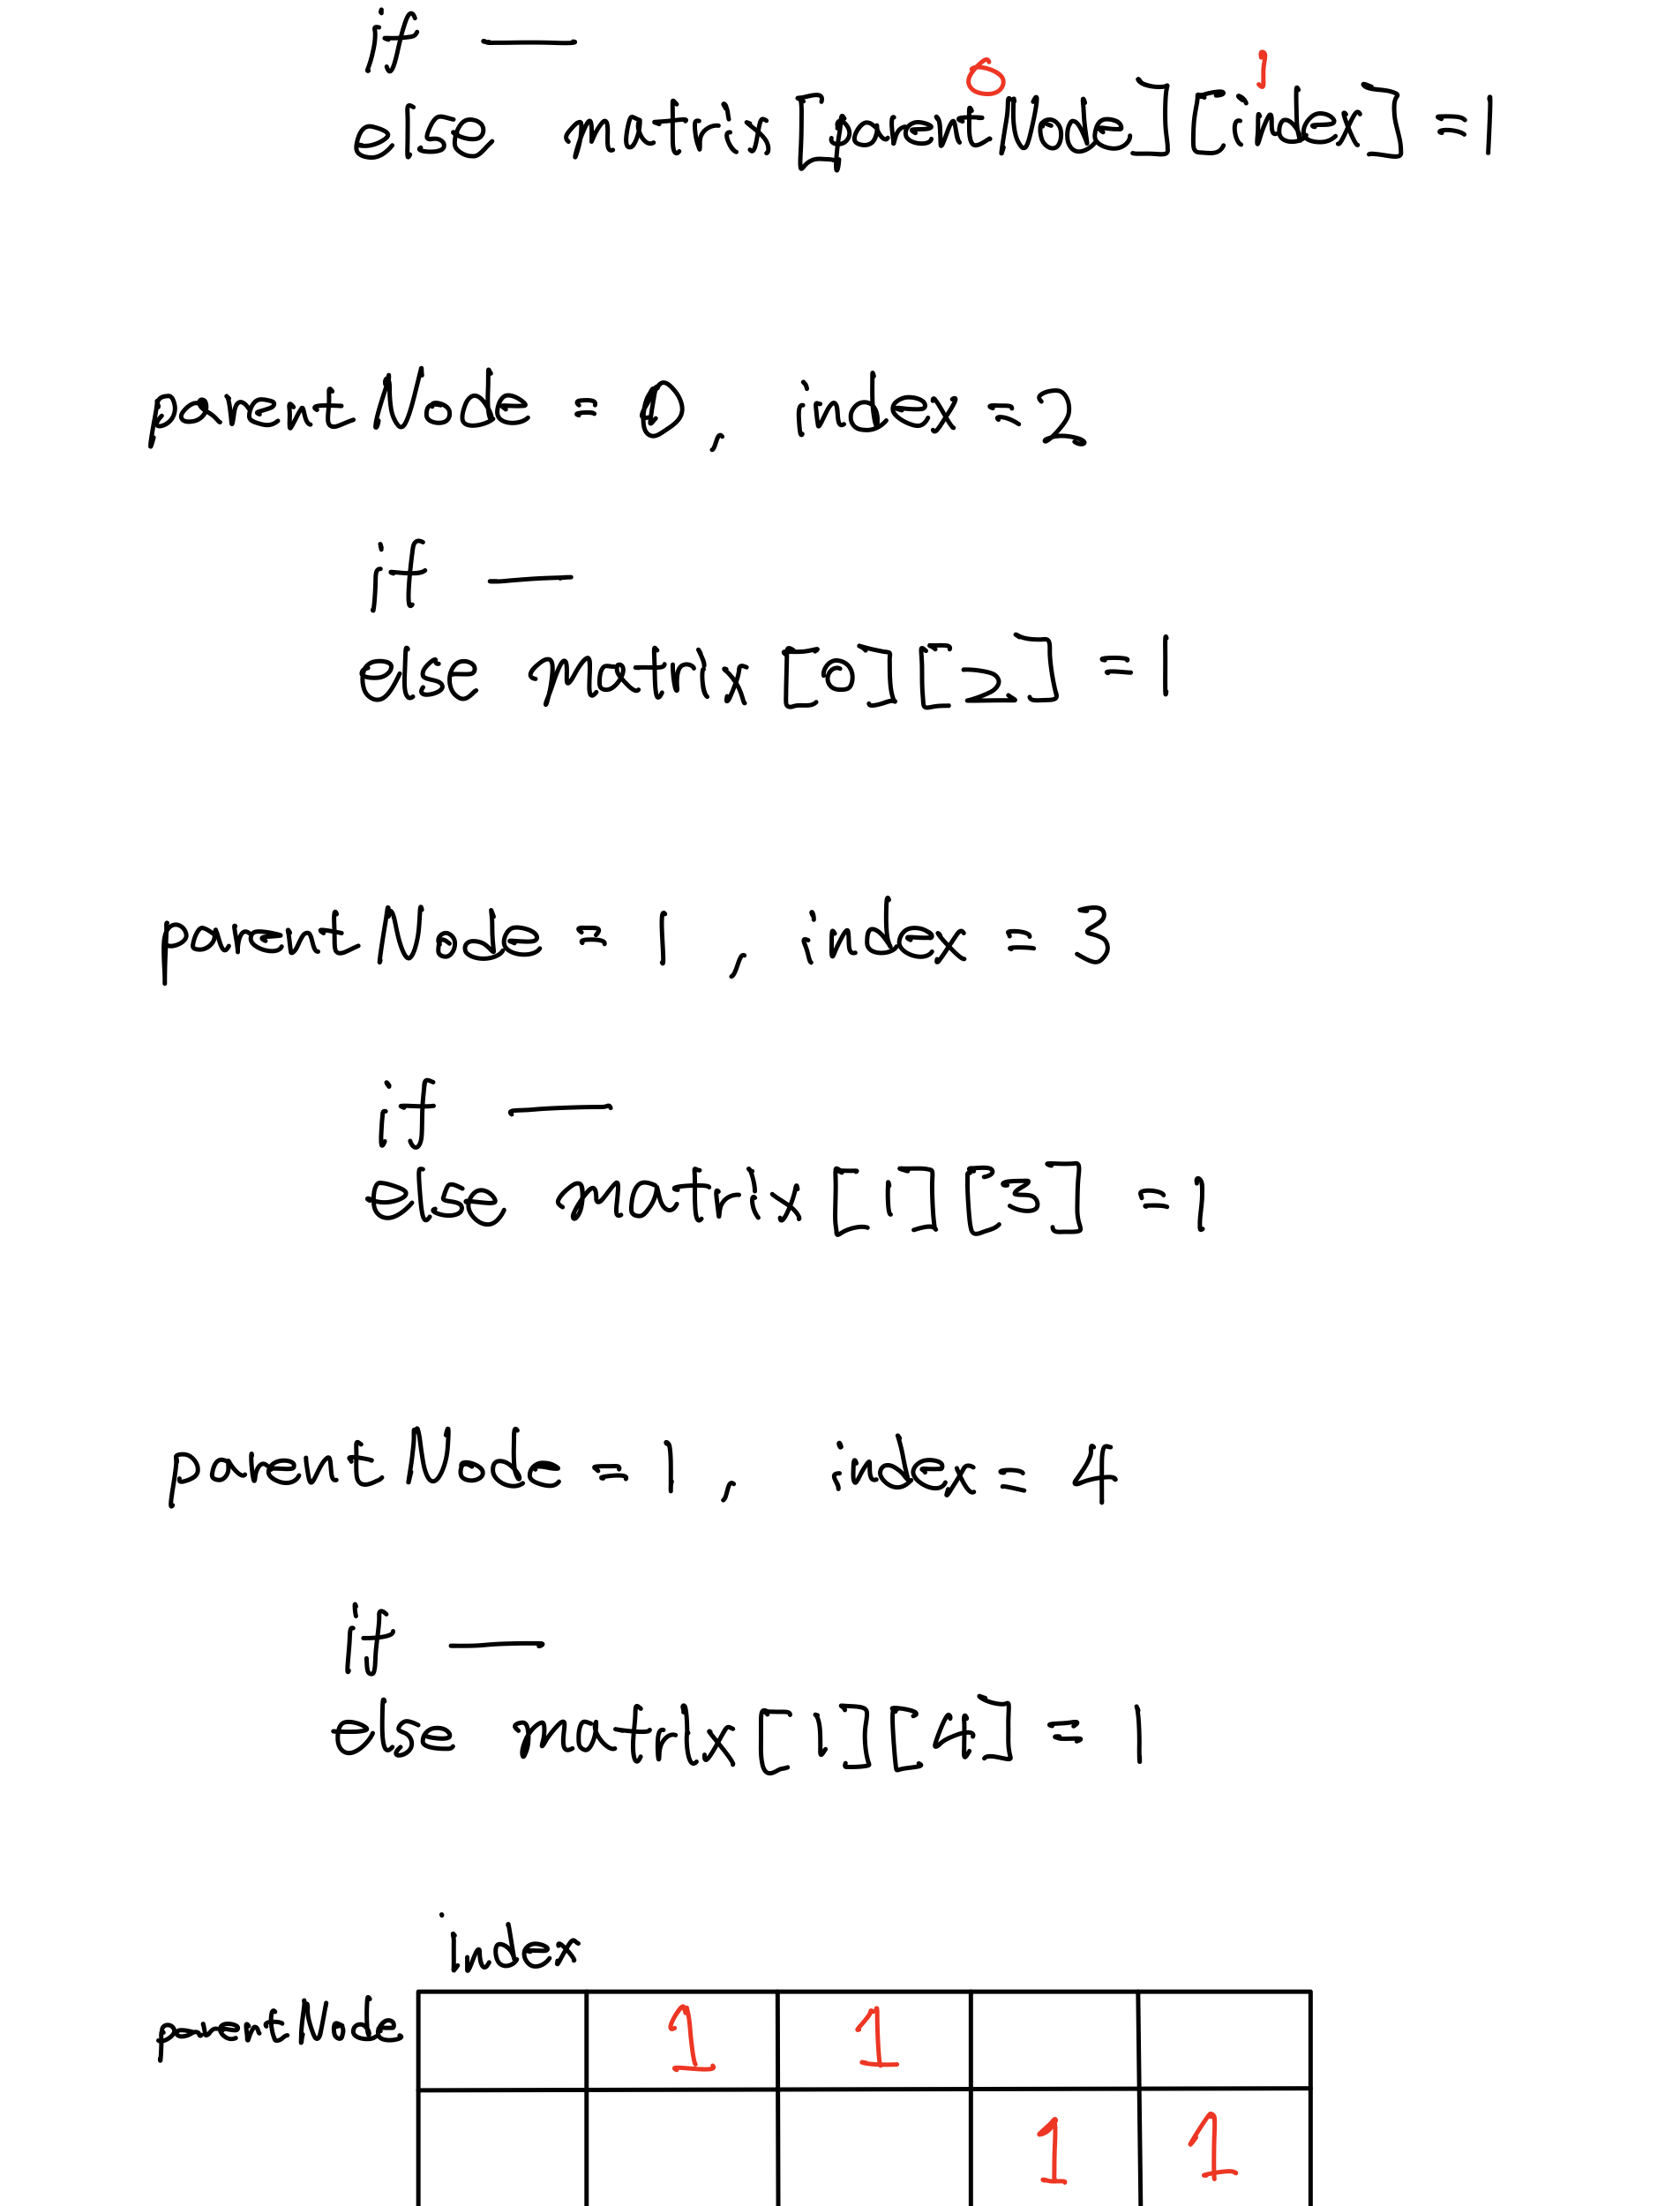 if —
0 1
else matrix[parentNode][index] = 1
parentNode = 0, index = 2
if —
else matrix[0][2] = 1
parentNode = 1, index = 3
if —
else matrix[1][3] = 1
parentNode = 1, index = 4
if —
else matrix[1][4] = 1
index
parentNode 1 1
1 1